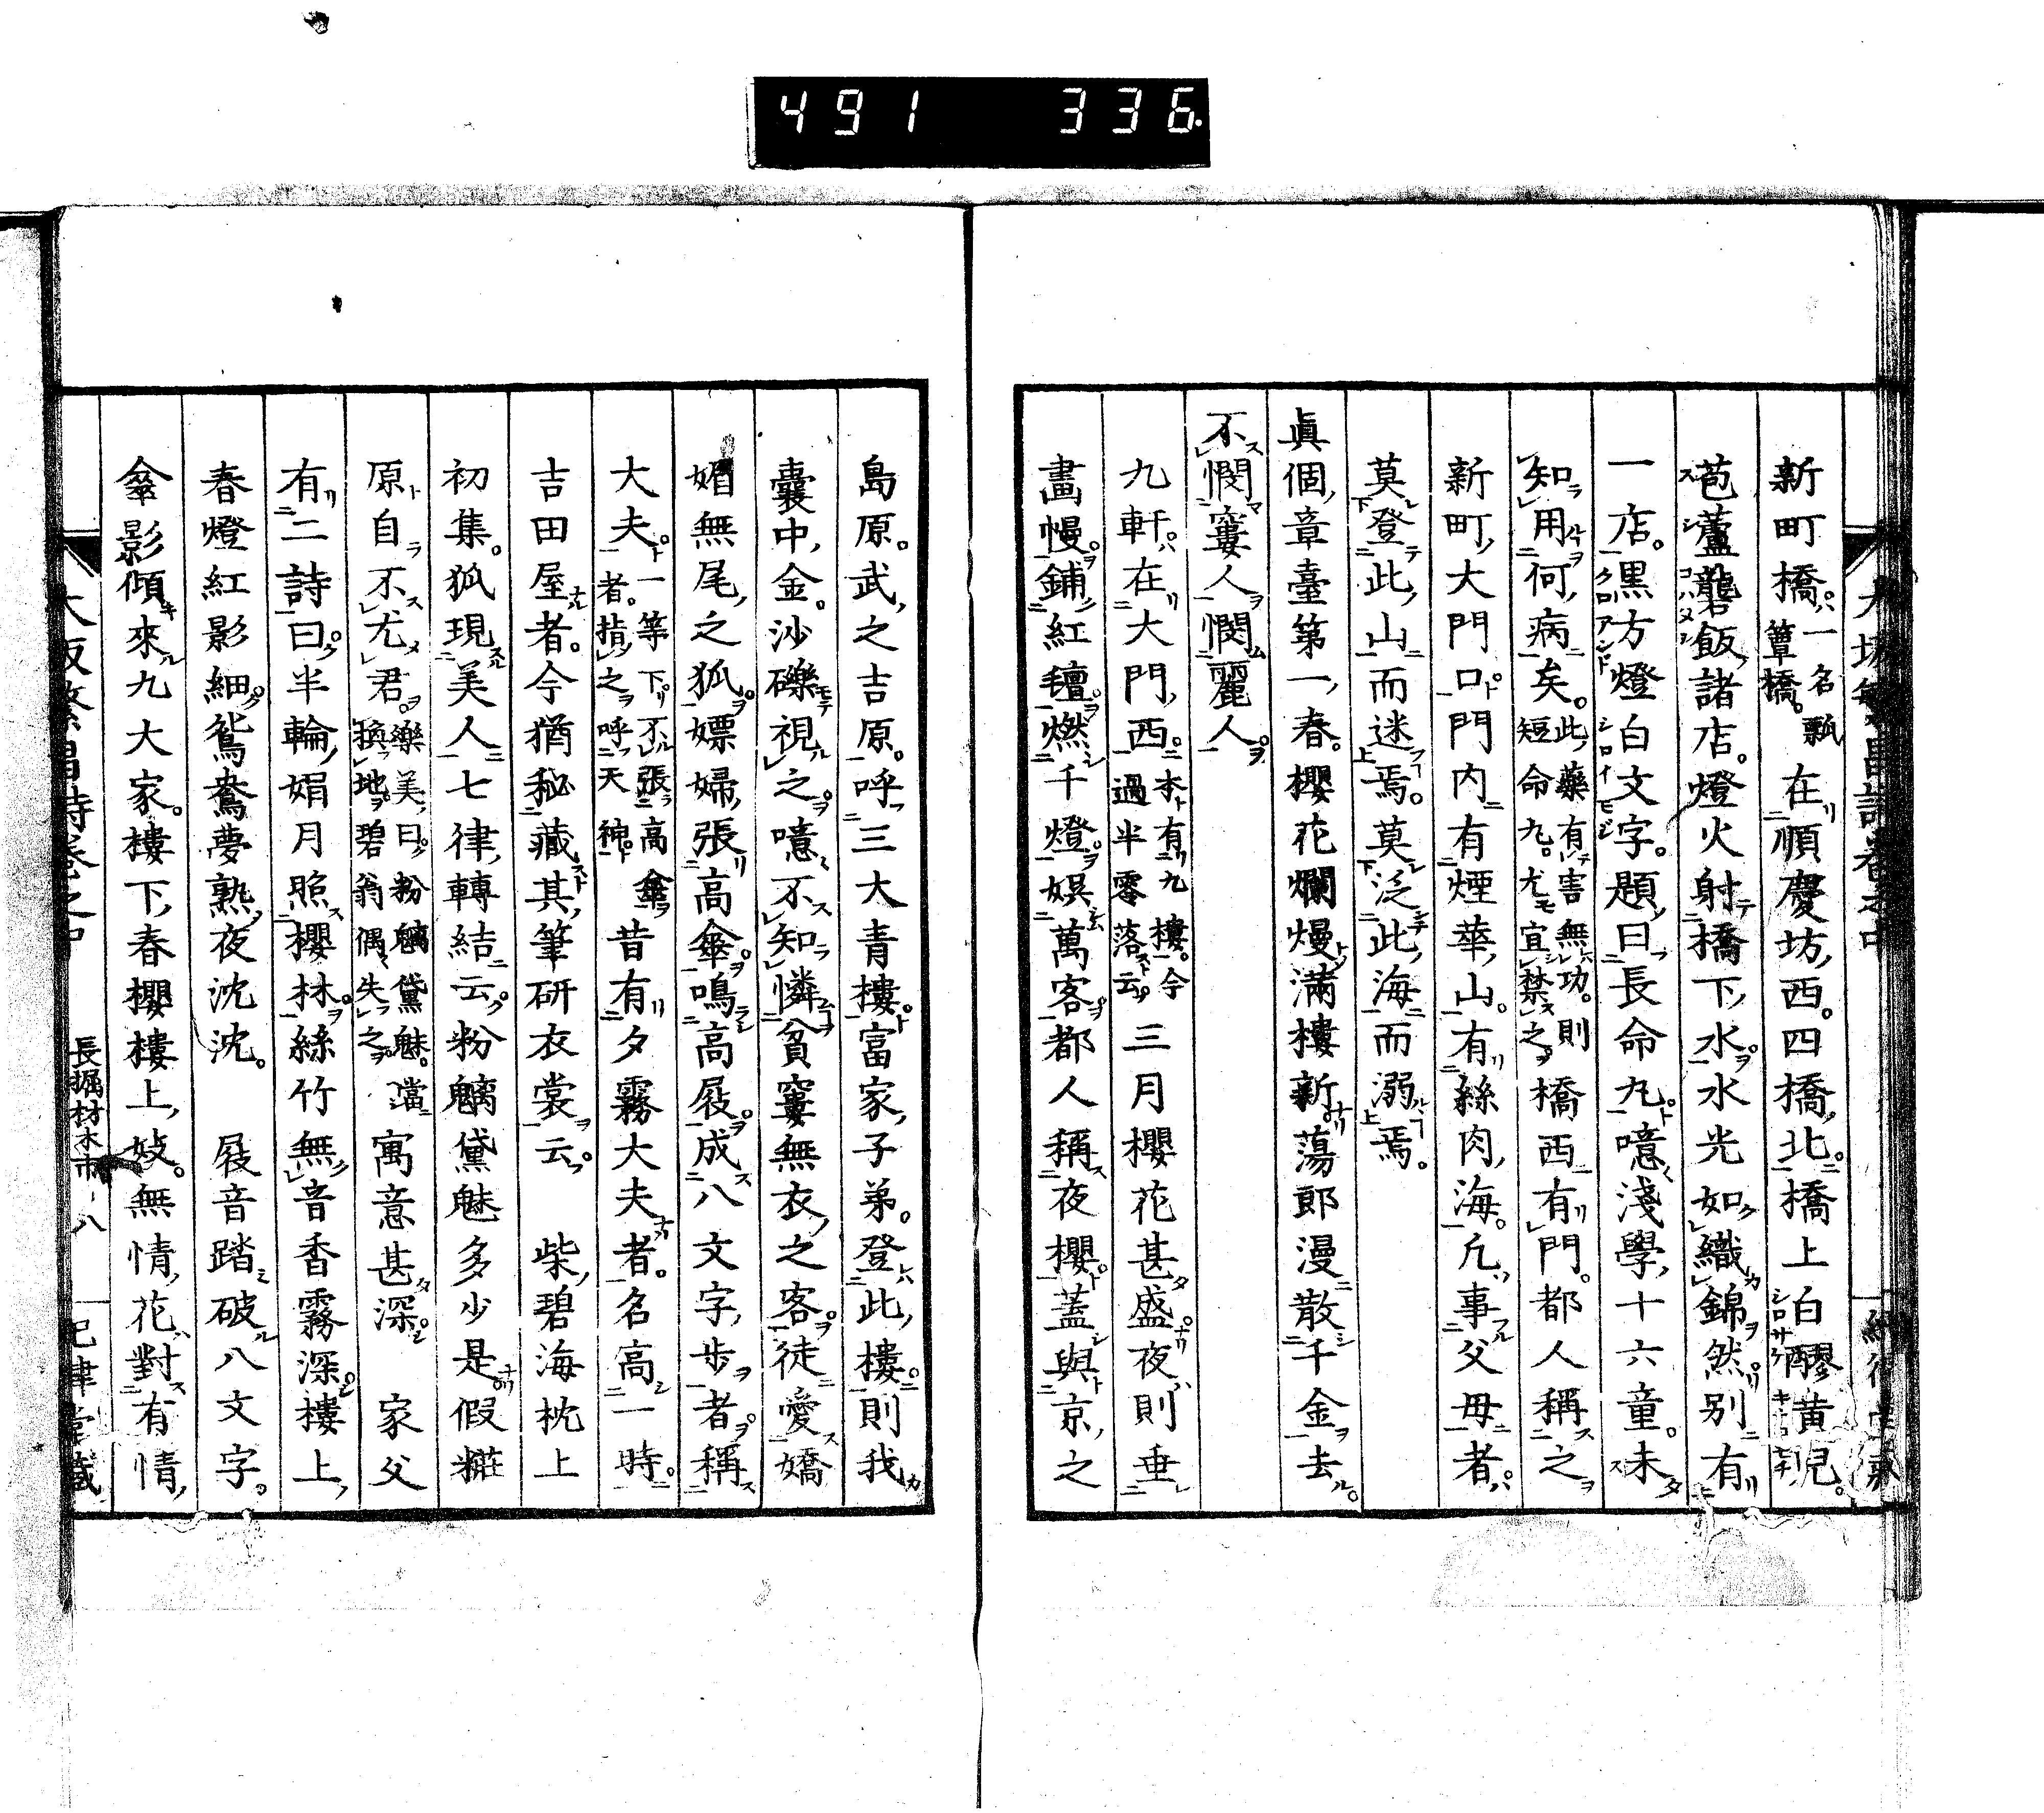 491 336
新町橋。一名瓢簟橋。在順慶坊西。四橋北。橋上白醪黃兒。
苞蘆礱飯諸店。燈火射橋下水。水光如織錦然別有
一店。黒方燈白文字。題曰長命丸。噫淺學十六童。未
知用何病矣。此藥有害無功。則短命丸。尤宜禁之。橋西有門。都人稱之
新町大門口。門内有煙華山。有絲肉海。凡事父母者。
莫登此山而迷焉。莫泛此海而溺焉。
眞個章臺第一春。櫻花爛熳滿樓新蕩郎漫散千金去。
不憫窶人憫麗人。
九軒。在大門西。本有九樓。今過半零落云。三月櫻花甚盛夜則垂
畫幔鋪紅氊燃千燈娯萬客都人稱夜櫻蓋與京之
島原。武之吉原。呼三大青樓。富家子弟。登此樓則我
嚢中金。沙礫視之。噫不知憐貧窶無衣之客。徒愛嬌
媚無尾之狐。嫖婦張高傘鳴高屐成八文字歩者。稱
大夫。一等下者。不張高傘指之呼天神。昔有夕霧大夫者。名高一時。
吉田屋者。今猶秘藏其筆研衣裳云。柴碧海枕上
初集。狐現美人七律轉結云。粉魑黛魅多少是假糚
原自不尤君。樂美曰。粉魑黛魅。當換地。碧翁偶失之。寓意甚深 家父
有二詩曰。半輪娟月照櫻林。絲竹無音香霧深樓上
春燈紅影細鴛鴦夢熟夜沈沈。 屐音踏破八文字。
傘影傾來九大家。樓下春櫻樓上妓。無情花對有情
長堀材木市 八